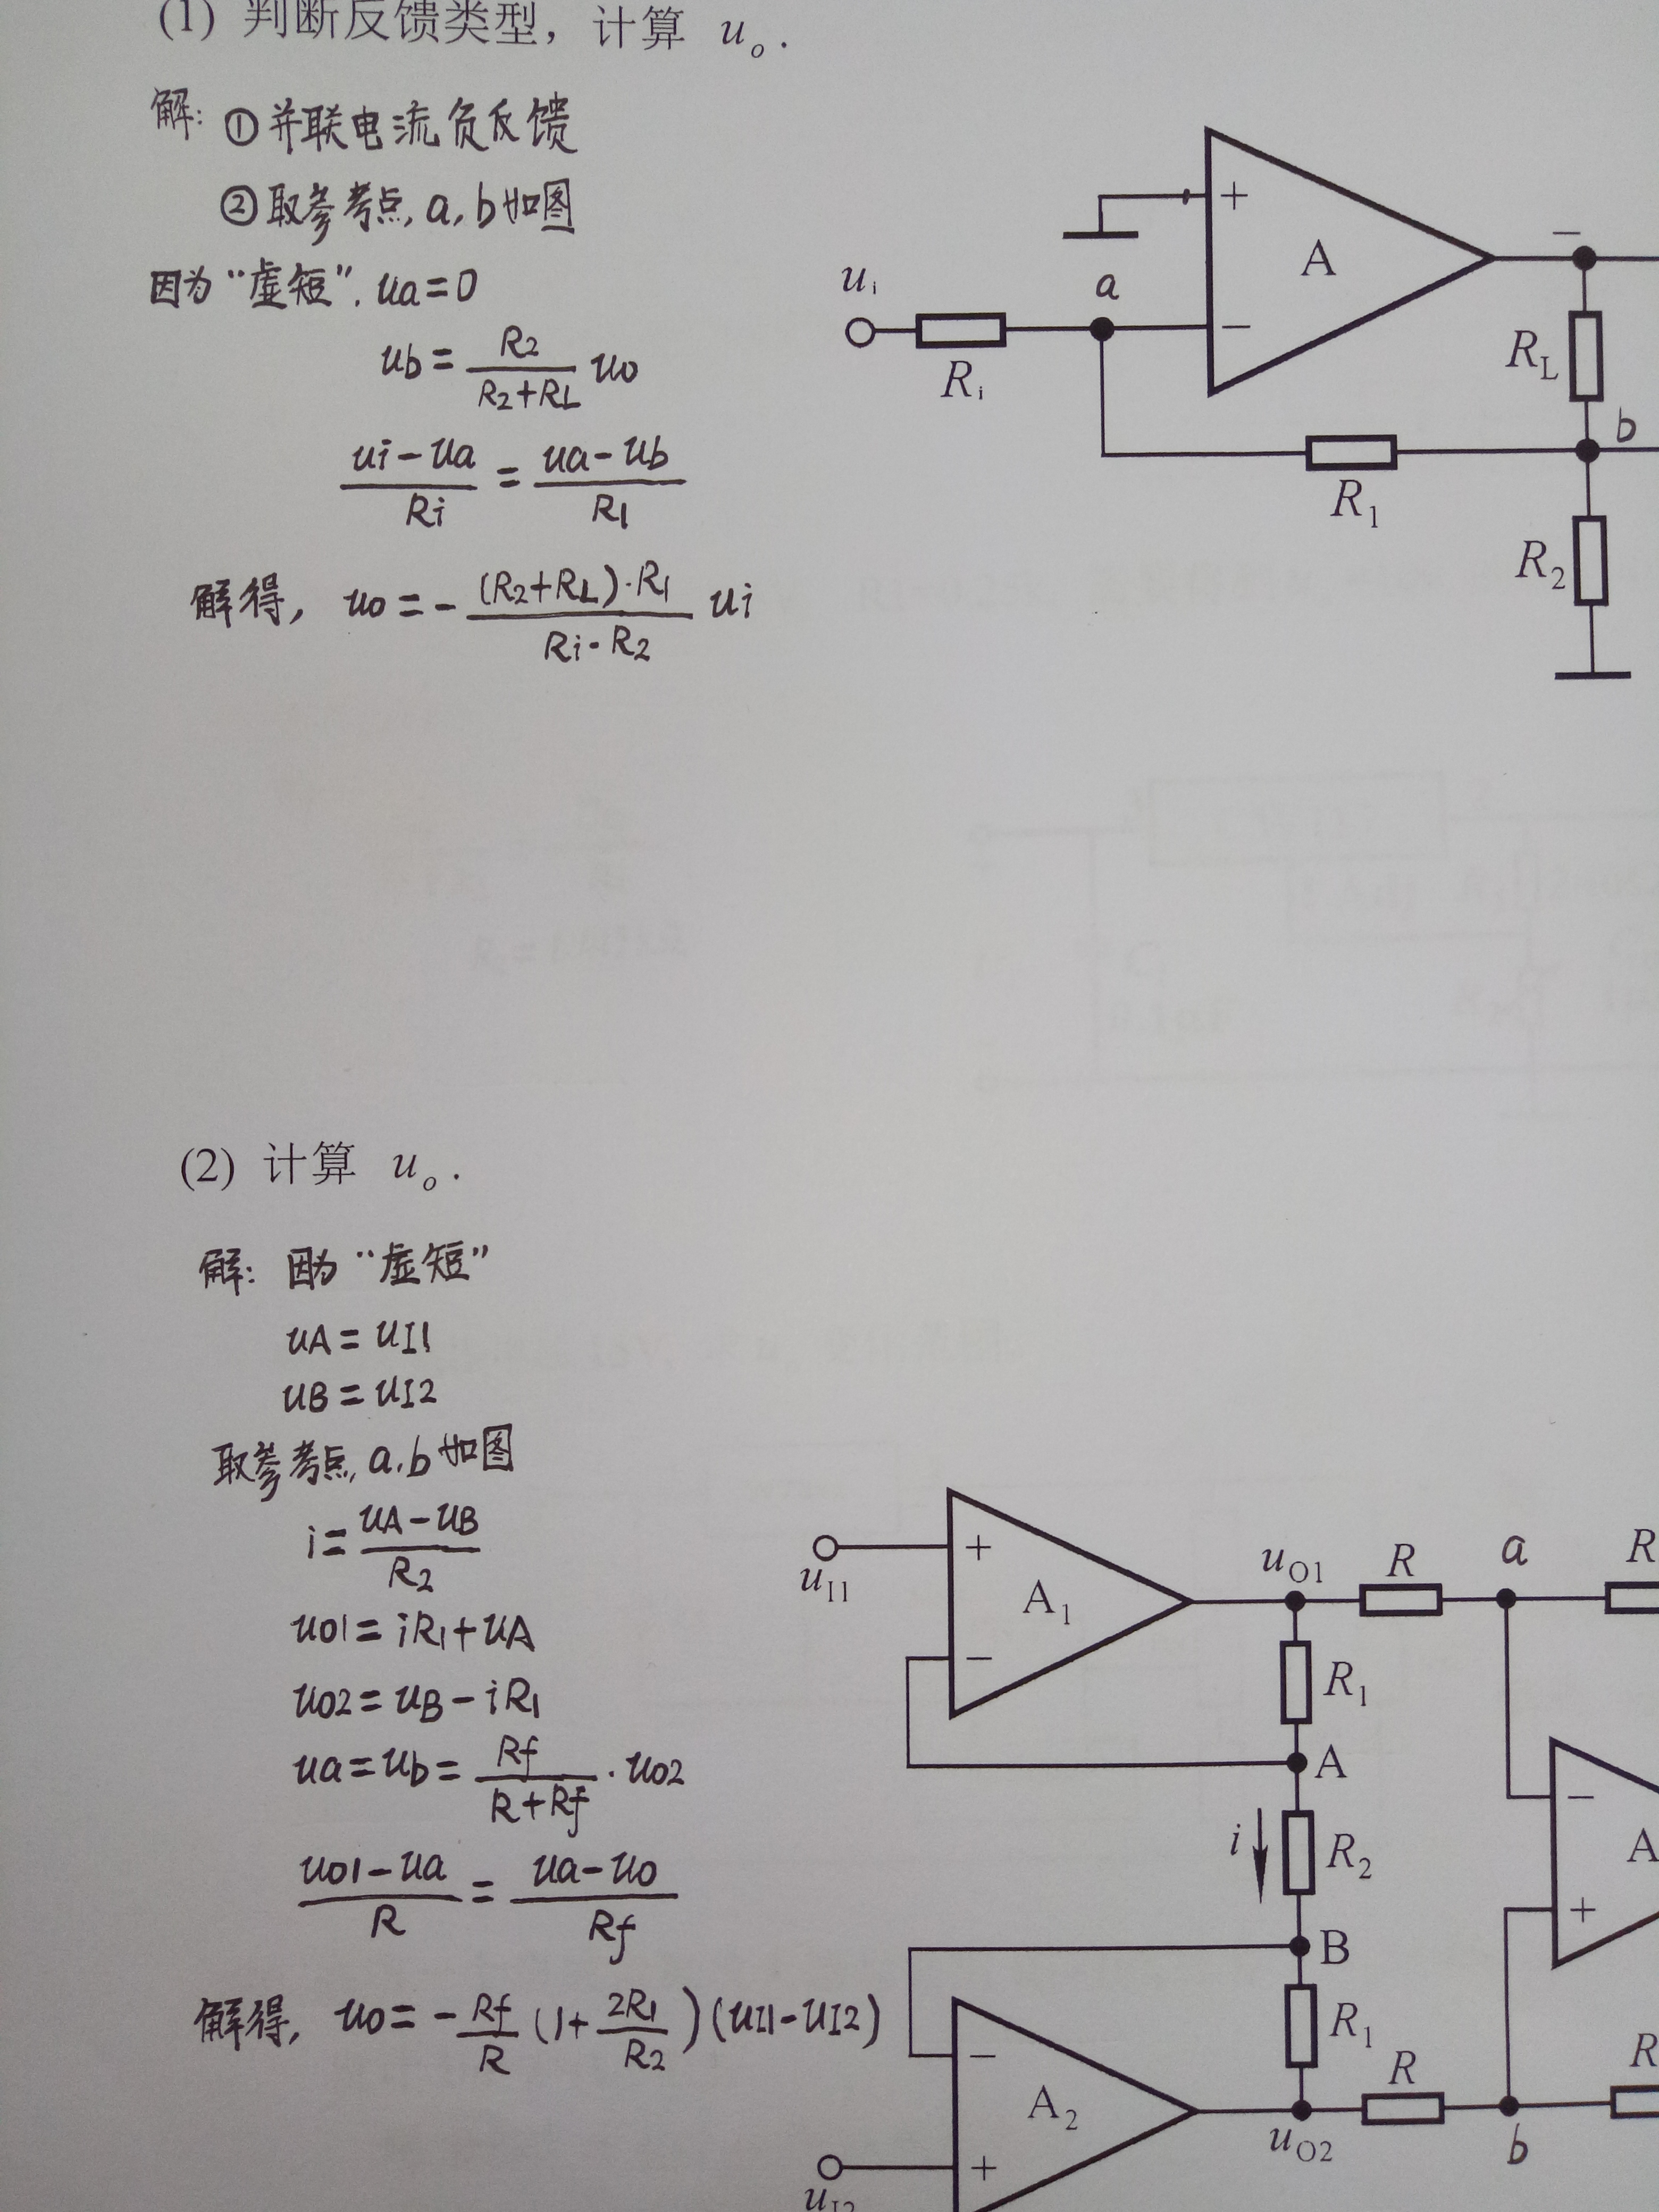 (1) 判断反馈类型，计算 u_o.
解: ①并联电流负反馈
②取参考点, a, b如图
因为“虚短”, ua=0
ub = R2/(R2+RL) uo
(ui-ua)/Ri = (ua-ub)/R1
解得, uo = - (R2+RL)·R1/(Ri·R2) ui
u_i
R_i
a
+
−
A
−
R_L
b
R_1
R_2
(2) 计算 u_o.
解: 因为“虚短”
uA = uI1
uB = uI2
取参考点, a, b如图
i = (uA-uB)/R2
uo1 = iR1+uA
uo2 = uB-iR1
ua = ub = Rf/(R+Rf) · uo2
(uo1-ua)/R = (ua-uo)/Rf
解得, uo = - Rf/R (1+ 2R1/R2)(uI1-uI2)
u_I1
+
−
A_1
u_O1
R
a
R
R_1
A
i
R_2
B
−
+
A
R_1
−
A_2
+
u_I2
u_O2
R
b
R